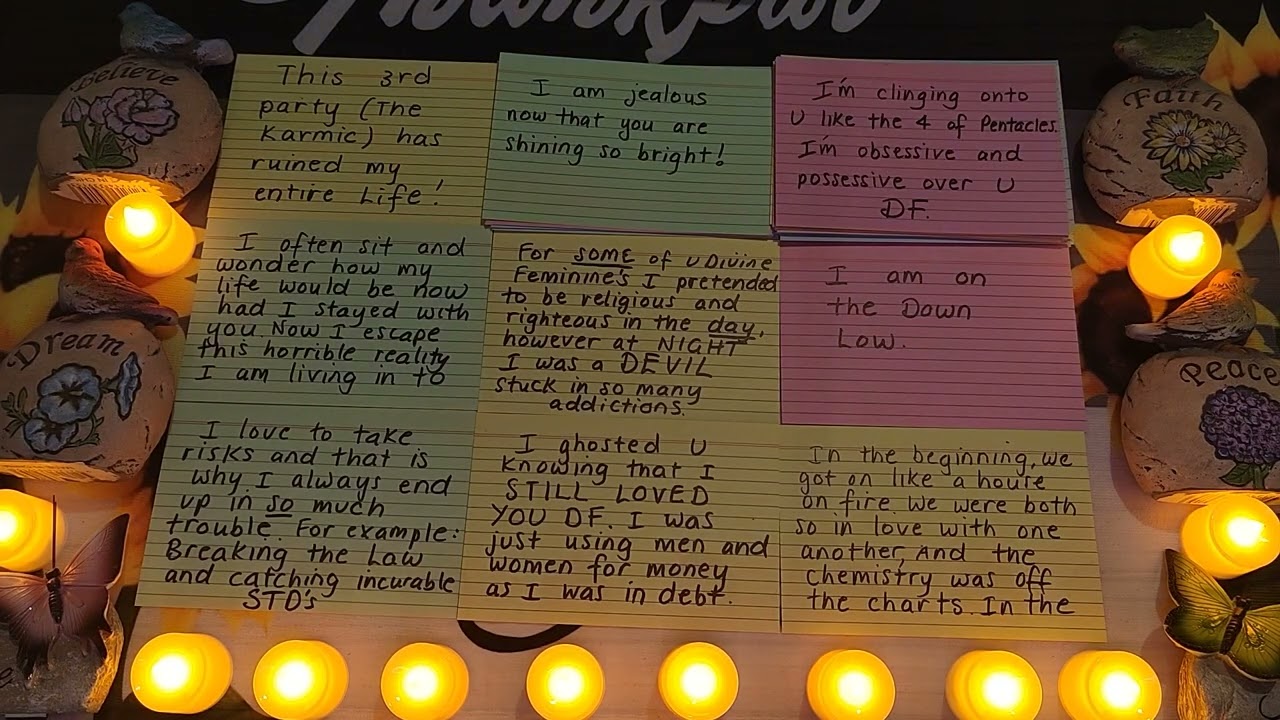 Believe
Faith
Dream
Peace
This 3rd
party (The
Karmic) has
ruined my
entire Life!
I am jealous
now that you are
shining so bright!
I'm clinging onto
U like the 4 of Pentacles.
I'm obsessive and
possessive over U
DF.
I often sit and
wonder how my
life would be now
had I stayed with
you Now I escape
this horrible reality
I am living in to
For SOME of U Divine
Feminine's I pretended
to be religious and
righteous in the day,
however at NIGHT
I was a DEVIL
stuck in so many
addictions.
I am on
the Down
Low.
I love to take
risks and that is
why I always end
up in so much
trouble. For example:
Breaking the Law
and catching incurable
STD's
I ghosted U
Knowing that I
STILL LOVED
YOU DF. I was
just using men and
women for money
as I was in debt.
In the beginning, we
got on like a house
on fire we were both
so in love with one
another, And the
chemistry was off
the charts. In the